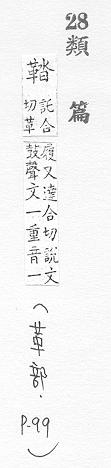 28 類篇
鞜
託合
切革
履又達合切說文
鼓聲文一重音一
(革部. P.99)